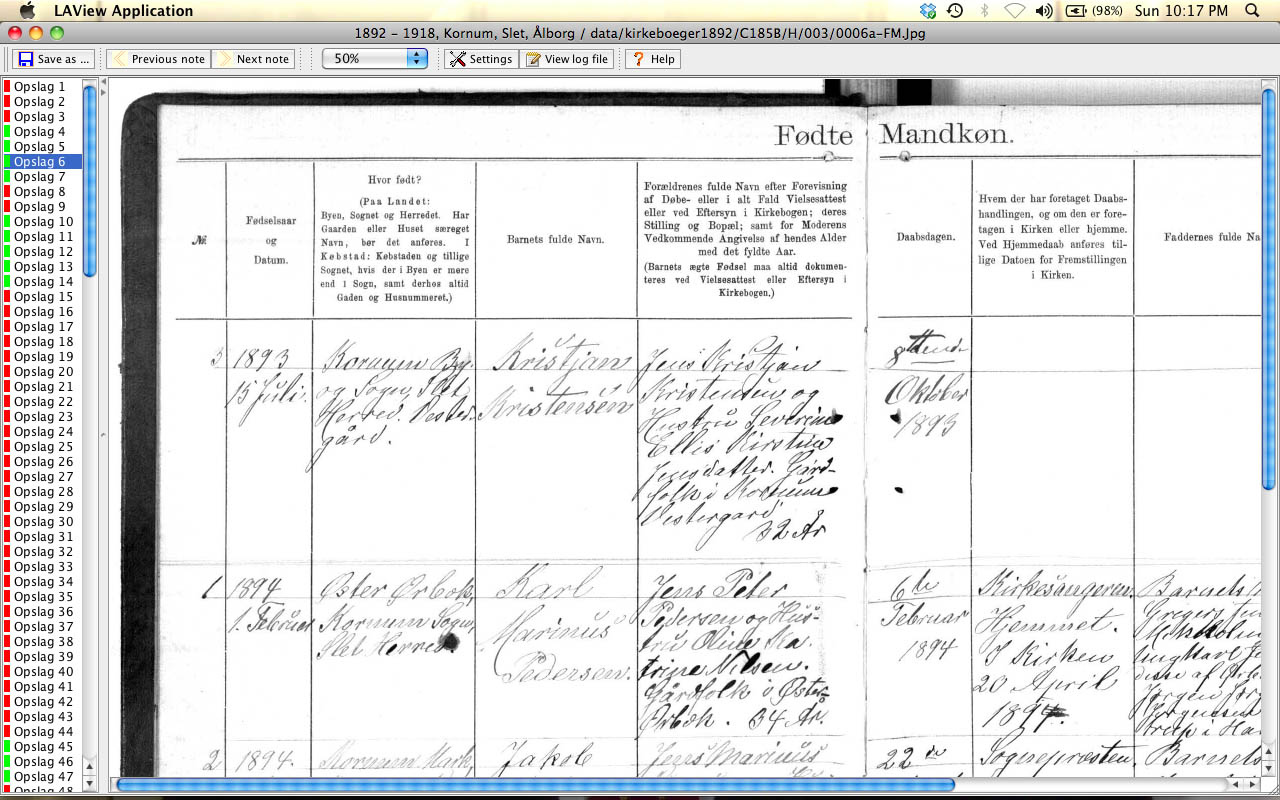 LAView Application
(98%) Sun 10:17 PM
1892 - 1918, Kornum, Slet, Ålborg / data/kirkeboeger1892/C185B/H/003/0006a-FM.Jpg
Save as ... Previous note Next note 50% Settings View log file Help
Opslag 1
Opslag 2
Opslag 3
Opslag 4
Opslag 5
Opslag 6
Opslag 7
Opslag 8
Opslag 9
Opslag 10
Opslag 11
Opslag 12
Opslag 13
Opslag 14
Opslag 15
Opslag 16
Opslag 17
Opslag 18
Opslag 19
Opslag 20
Opslag 21
Opslag 22
Opslag 23
Opslag 24
Opslag 25
Opslag 26
Opslag 27
Opslag 28
Opslag 29
Opslag 30
Opslag 31
Opslag 32
Opslag 33
Opslag 34
Opslag 35
Opslag 36
Opslag 37
Opslag 38
Opslag 39
Opslag 40
Opslag 41
Opslag 42
Opslag 43
Opslag 44
Opslag 45
Opslag 46
Opslag 47
Opslag 48
Fødte Mandkøn.
№
Fødselsaar
og
Datum.
Hvor født?
(Paa Landet:
Byen, Sognet og Herredet. Har
Gaarden eller Huset særeget
Navn, bør det anføres. I
Købstad: Købstaden og tillige
Sognet, hvis der i Byen er mere
end 1 Sogn, samt derhos altid
Gaden og Husnummeret.)
Barnets fulde Navn.
Forældrenes fulde Navn efter Forevisning
af Døbe- eller i alt Fald Vielsesattest
eller ved Eftersyn i Kirkebogen; deres
Stilling og Bopæl; samt for Moderens
Vedkommende Angivelse af hendes Alder
med det fyldte Aar.
(Barnets ægte Fødsel maa altid dokumen-
teres ved Vielsesattest eller Eftersyn i
Kirkebogen.)
Daabsdagen.
Hvem der har foretaget Daabs-
handlingen, og om den er fore-
tagen i Kirken eller hjemme.
Ved Hjemmedaab anføres til-
lige Datoen for Fremstillingen
i Kirken.
Faddernes fulde Na
3
1893
15 Juli.
Kornum By
og Sogn, Slet
Herred. Vester-
gård.
Kristjan
Kristensen
Jens Kristjan
Kristensen og
Hustru Severine
Ellis Kirstine
Jensdatter. Gård-
folk i Kornum
Vestergård
32 År
8
Oktober
1893
1
1894
1. Februar
Øster Ørbæk,
Kornum Sogn,
Slet Herred.
Karl
Marinus
Pedersen.
Jens Peter
Pedersen og Hus-
tru Oline Ka
trine Nilsen.
Gårdfolk i Øster-
Ørbæk. 34 År.
6te
Februar
1894
Kirkesangeren.
Hjemmet.
I Kirken
20 April
1894.
Barnets
2
1894.
Kornum Mark,
Jakob
Jens Marinus
22de
Sognepræsten
Barnets